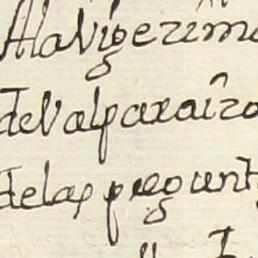 A la Vigezima
de Valparaizo
de las pregunt